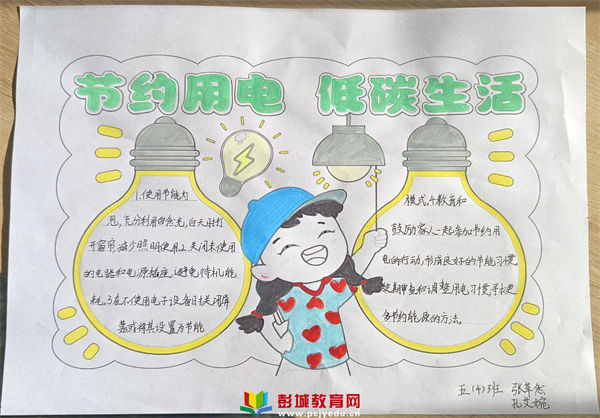 节约用电 低碳生活
1.使用节能灯
泡,充分利用自然光,白天时打
开窗帘减少照明使用2.关闭未使用
的电器和电源插座,避免待机能
耗.3.在不使用电子设备时关闭屏
幕或将其设置为节能
模式.4.教育和
鼓励家人一起参加节约用
电的行动,形成良好的节能习惯
定期审查和调整用电习惯寻找更
多节约能源的方法。
五(4)班
彭城教育网
www.pcjyedu.cn